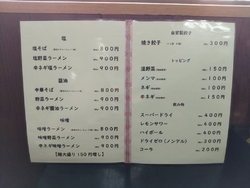 塩
塩そば 800円
塩野菜ラーメン 900円
辛ネギ塩ラーメン 900円
醤油
中華そば 800円
野菜ラーメン 900円
辛ネギ醤油ラーメン 900円
味噌
味噌ラーメン 800円
味噌野菜ラーメン 900円
辛ネギ味噌ラーメン 900円
【麺大盛り150円増し】
自家製餃子
焼き餃子 300円
トッピング
温野菜 150円
メンマ 100円
ネギ 100円
辛ネギ 150円
飲み物
スーパードライ 400円
レモンサワー 400円
ハイボール 400円
ドライゼロ(ノンアル) 300円
コーラ 200円